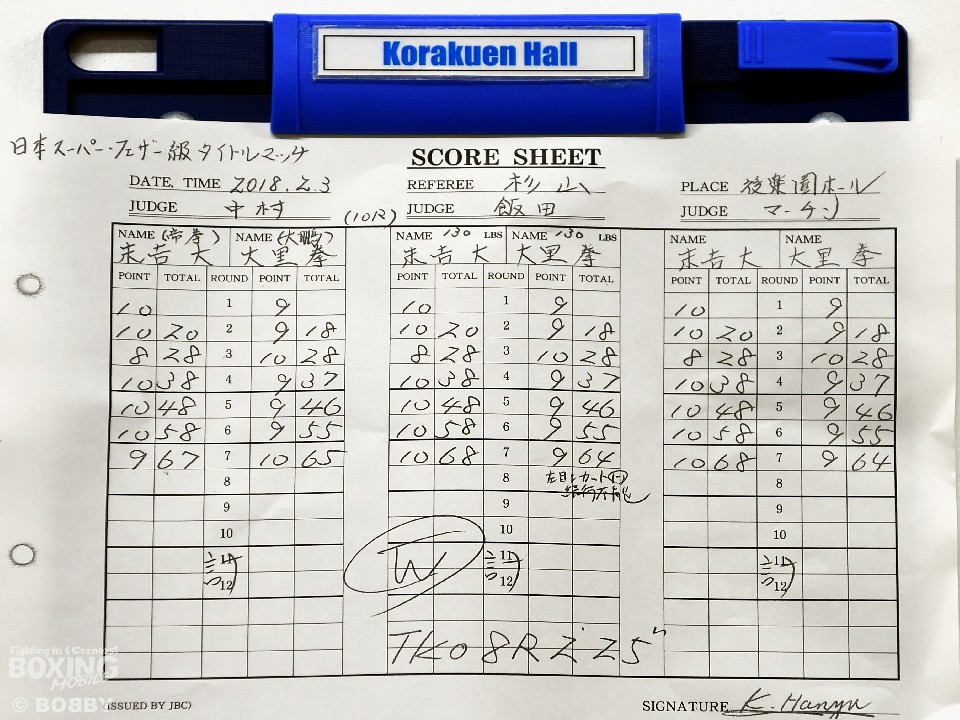 Korakuen Hall
日本スーパー・フェザー級タイトルマッチ
SCORE SHEET
DATE, TIME 2018.2.3 REFEREE 杉山 PLACE 後楽園ホール
JUDGE 中村 (10R) JUDGE 飯田 JUDGE マーチン
NAME (帝拳) NAME (大鵬) NAME 130 LBS NAME 130 LBS NAME NAME
末吉大 大里拳 末吉大 大里拳 末吉大 大里拳
POINT TOTAL ROUND POINT TOTAL POINT TOTAL ROUND POINT TOTAL POINT TOTAL ROUND POINT TOTAL
10 1 9 10 1 9 10 1 9
10 20 2 9 18 10 20 2 9 18 10 20 2 9 18
8 28 3 10 28 8 28 3 10 28 8 28 3 10 28
10 38 4 9 37 10 38 4 9 37 10 38 4 9 37
10 48 5 9 46 10 48 5 9 46 10 48 5 9 46
10 58 6 9 55 10 58 6 9 55 10 58 6 9 55
9 67 7 10 65 10 68 7 9 64 10 68 7 9 64
8 8 左目上カット 8
続行不能
9 9 9
10 10 10
11 W 11 11
12 12 12
TKO 8R 2'25"
Fighting in 4 Corners!
BOXING
MOBILE
© BOBBY
(ISSUED BY JBC) SIGNATURE K. Hanyu